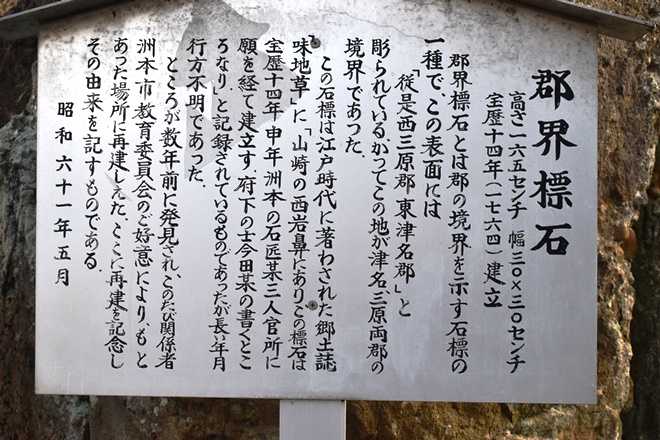 郡界標石
高さ一六五センチ 幅三〇×三〇センチ
宝暦十四年(一七六四)建立
郡界標石とは郡の境界を示す石標の
一種で、この表面には
「従是西三原郡、東津名郡」と
彫られているかつてこの地が津名、三原両郡の
境界であった.
この石標は江戸時代に著わされた郷土誌
味地草」に「山崎の西岩鼻にありこの標石は
宝暦十四年申年、洲本の石匠某三人官所に
願を経て建立す.府下の士今田某の書くとこ
ろなり」と記録されているものであったが長い年月
行方不明であった.
ところが数年前に発見され、このたび関係者
洲本市教育委員会のご好意により、もと
あった場所に再建しえた.ここに再建を記念し
その由来を記すものである.
昭和六十一年五月